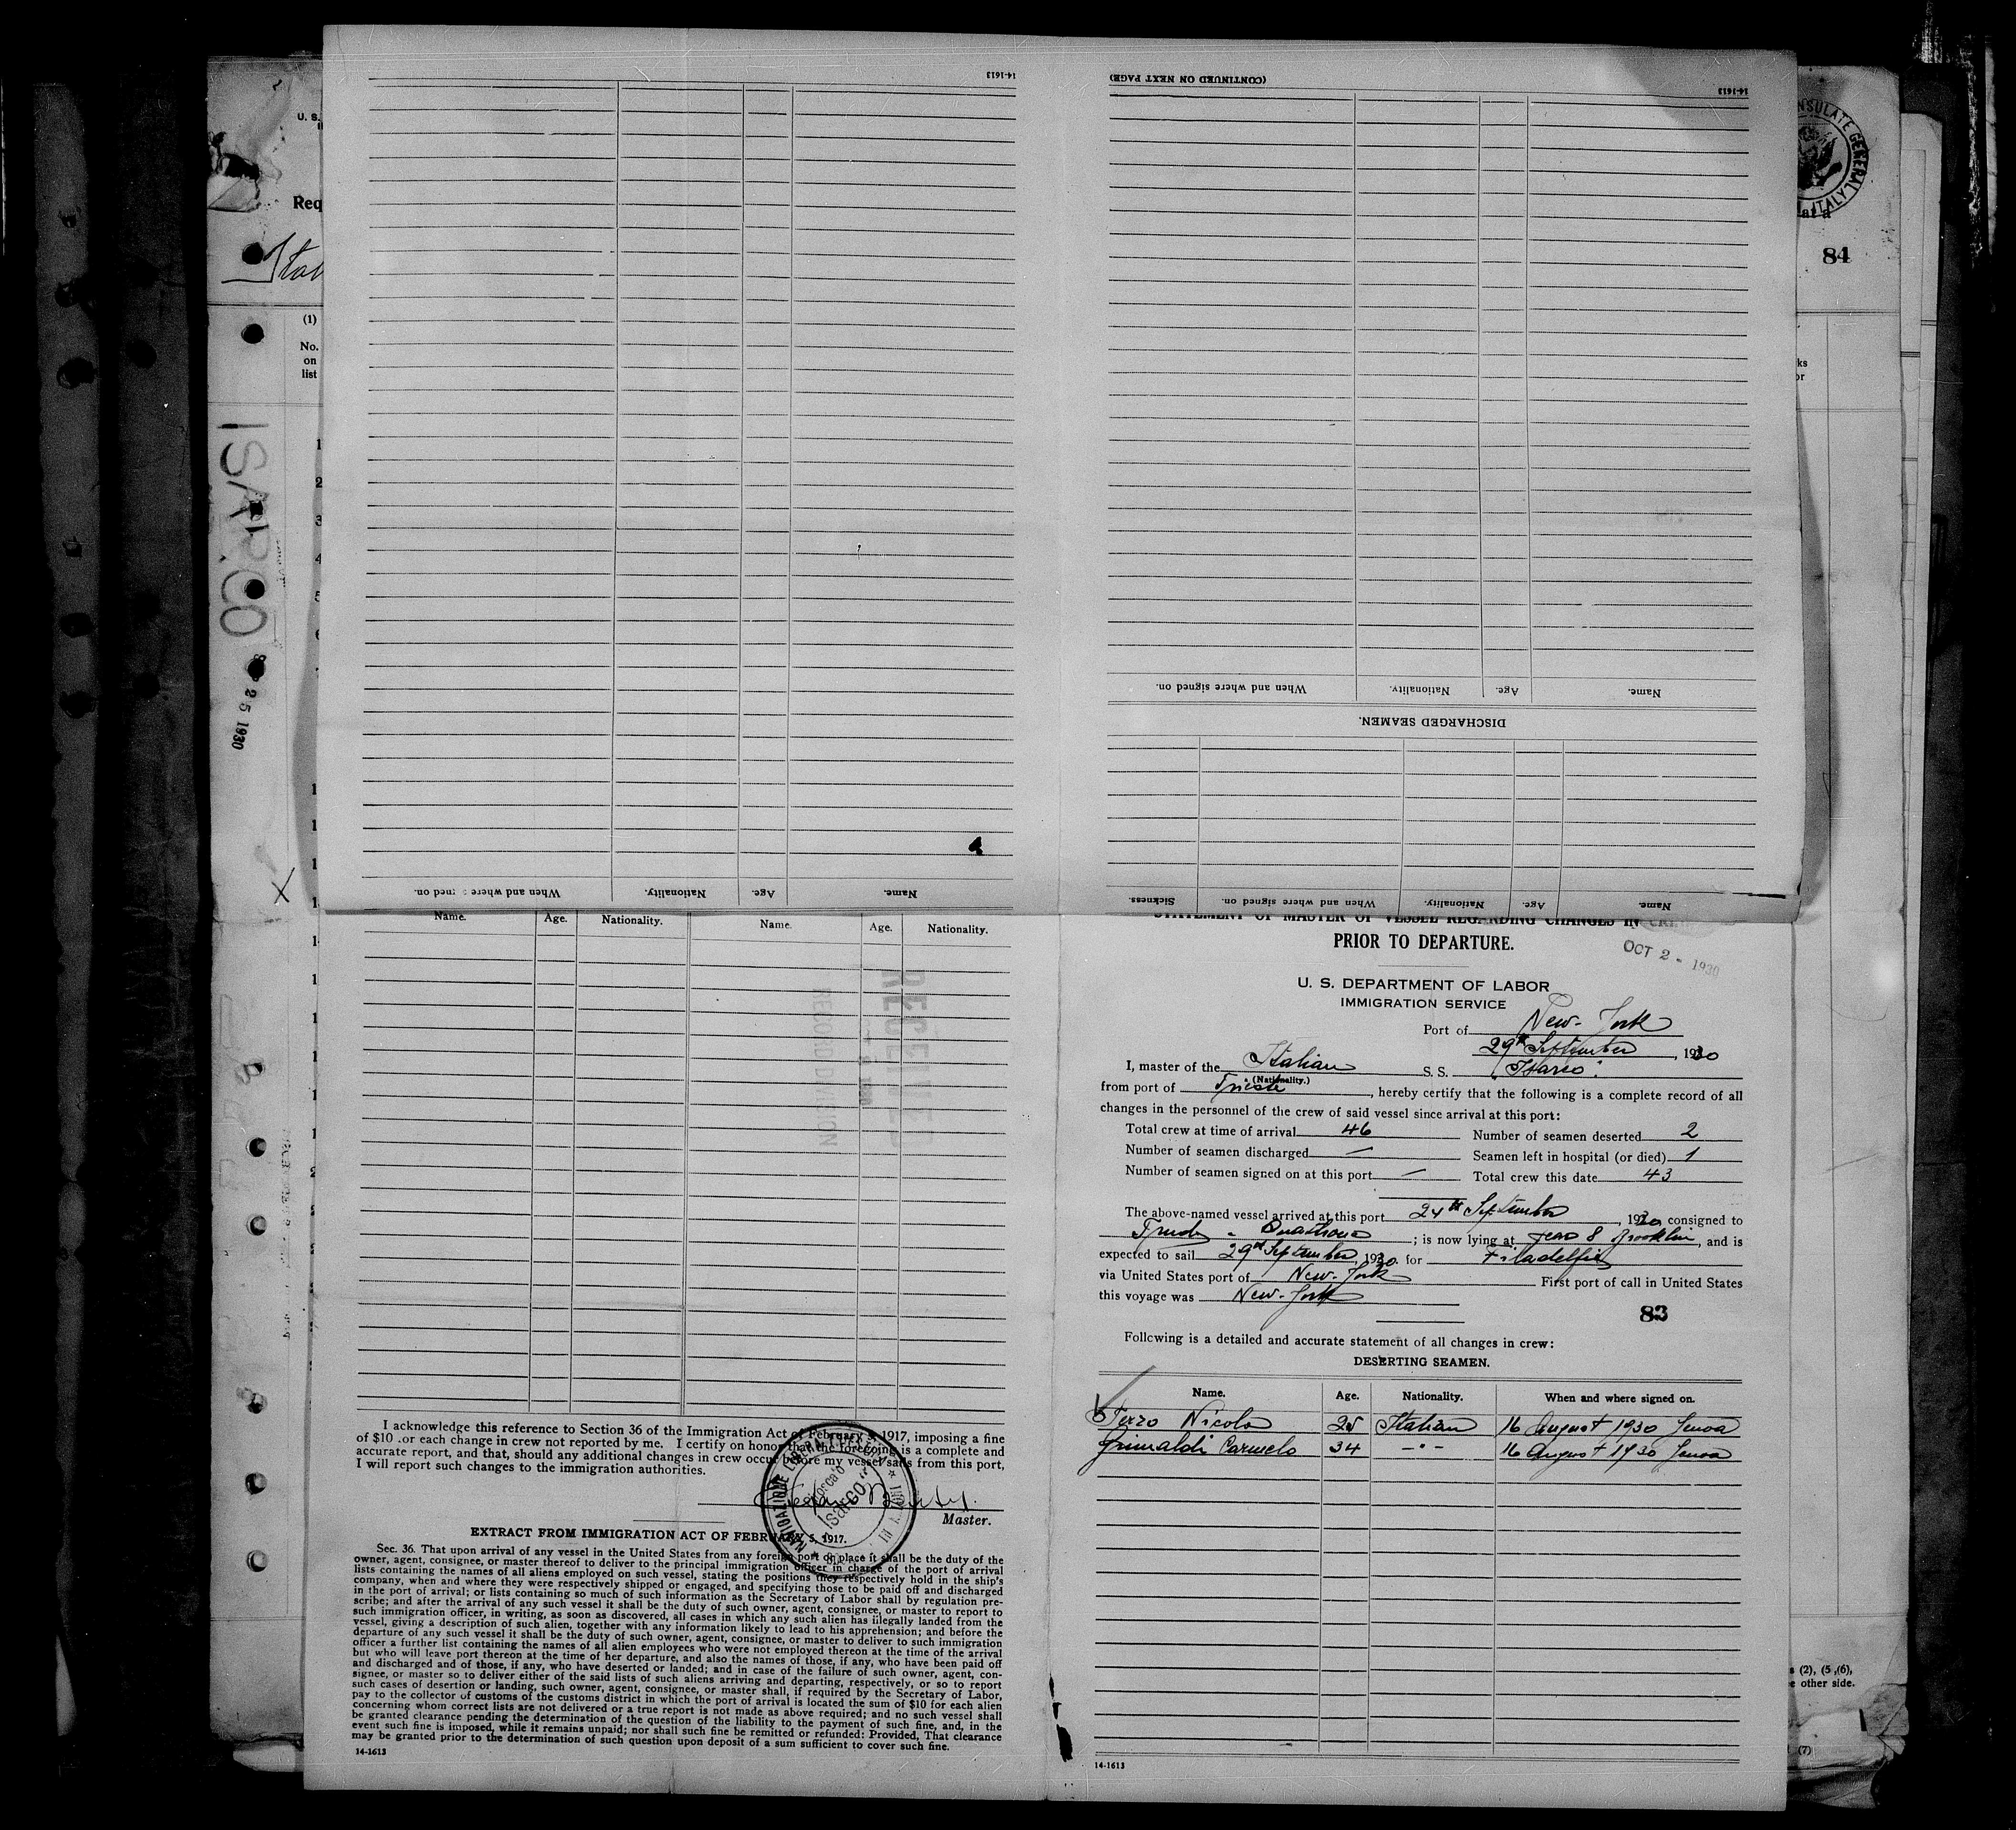 14-1613
(CONTINUED ON NEXT PAGE)
14-1613
CONSULATE GENERAL
ITALY
U. S.
Req
84
(1)
No.
on
list
ISARCO
25 1930
When and where signed on. Nationality. Age. Name.
DISCHARGED SEAMEN.
Sickness. When and where signed on. Nationality. Age. Name.
When and where signed on. Nationality. Age. Name.
Name. Age. Nationality. Name. Age. Nationality.
RECEIVED
RECORD DIVISION
I acknowledge this reference to Section 36 of the Immigration Act of February 5, 1917, imposing a fine
of $10 for each change in crew not reported by me. I certify on honor that the foregoing is a complete and
accurate report, and that, should any additional changes in crew occur before my vessel sails from this port,
I will report such changes to the immigration authorities.
NAVIGAZIONE LIBERA TRIESTINA
Piroscafo
"Isarco"
Master.
EXTRACT FROM IMMIGRATION ACT OF FEBRUARY 5, 1917.
Sec. 36. That upon arrival of any vessel in the United States from any foreign port or place it shall be the duty of the
owner, agent, consignee, or master thereof to deliver to the principal immigration officer in charge of the port of arrival
lists containing the names of all aliens employed on such vessel, stating the positions they respectively hold in the ship's
company, when and where they were respectively shipped or engaged, and specifying those to be paid off and discharged
in the port of arrival; or lists containing so much of such information as the Secretary of Labor shall by regulation pre-
scribe; and after the arrival of any such vessel it shall be the duty of such owner, agent, consignee, or master to report to
such immigration officer, in writing, as soon as discovered, all cases in which any such alien has illegally landed from the
vessel, giving a description of such alien, together with any information likely to lead to his apprehension; and before the
departure of any such vessel it shall be the duty of such owner, agent, consignee, or master to deliver to such immigration
officer a further list containing the names of all alien employees who were not employed thereon at the time of the arrival
but who will leave port thereon at the time of her departure, and also the names of those, if any, who have been paid off
and discharged and of those, if any, who have deserted or landed; and in case of the failure of such owner, agent, con-
signee, or master so to deliver either of the said lists of such aliens arriving and departing, respectively, or so to report
such cases of desertion or landing, such owner, agent, consignee, or master shall, if required by the Secretary of Labor,
pay to the collector of customs of the customs district in which the port of arrival is located the sum of $10 for each alien
concerning whom correct lists are not delivered or a true report is not made as above required; and no such vessel shall
be granted clearance pending the determination of the question of the liability to the payment of such fine, and, in the
event such fine is imposed, while it remains unpaid; nor shall such fine be remitted or refunded: Provided, That clearance
may be granted prior to the determination of such question upon deposit of a sum sufficient to cover such fine.
14-1613
STATEMENT OF MASTER OF VESSEL REGARDING CHANGES IN CREW
PRIOR TO DEPARTURE.
OCT 2 - 1930
U. S. DEPARTMENT OF LABOR
IMMIGRATION SERVICE
Port of New-York
29th September, 1930
I, master of the Italian S. S. "Isarco"
(Nationality.)
from port of Trieste, hereby certify that the following is a complete record of all
changes in the personnel of the crew of said vessel since arrival at this port:
Total crew at time of arrival 46 Number of seamen deserted 2
Number of seamen discharged — Seamen left in hospital (or died) 1
Number of seamen signed on at this port — Total crew this date 43
The above-named vessel arrived at this port 24th September, 1930 consigned to
; is now lying at 8 Brooklin, and is
expected to sail 29th September, 1930 for Filadelfia
via United States port of New-York First port of call in United States
this voyage was New-York
83
Following is a detailed and accurate statement of all changes in crew:
DESERTING SEAMEN.
Name. Age. Nationality. When and where signed on.
Ferro Nicola 25 Italian 16 August 1930 Genoa
Grimaldi Carmelo 34 -"- 16 August 1930 Genoa
14-1613
(2), (5), (6),
other side.
(7)